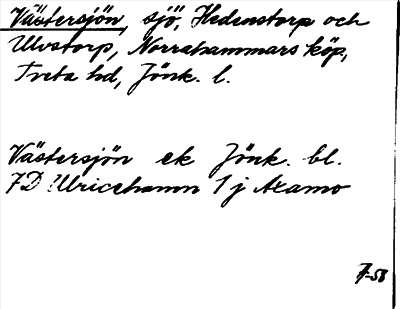 Västersjön, sjö, Hedenstorp och
Ulvstorp, Norrahammars köp,
Tveta hd, Jönk. l.
Västersjön ek Jönk. bl.
7D Ulricehamn 1 j Axamo
7-58